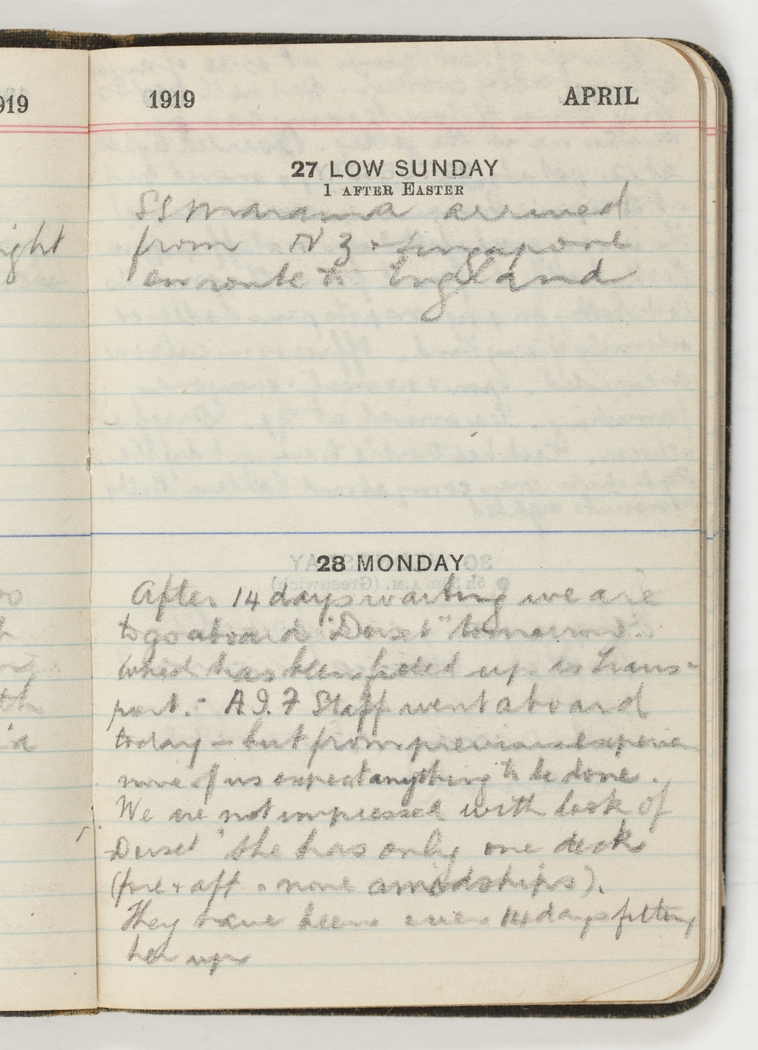 919
1919 APRIL
27 LOW SUNDAY
1 AFTER EASTER
SS Marama arrived
from N Z + Singapore
en route to England
ight
28 MONDAY
After 14 days waiting we are
to go aboard "Dorset" tomorrow.
which has been fitted up as Trans-
port. - A.I.F Staff went aboard
today - but from previous experience
none of us expect anything to be done.
We are not impressed with look of
Dorset" She has only one deck
(fore + aft - none amidships).
They have been over 14 days fitting
her up
th